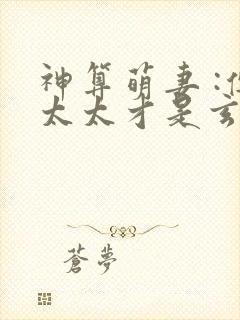 神算萌妻:
太太才是
蒼夢